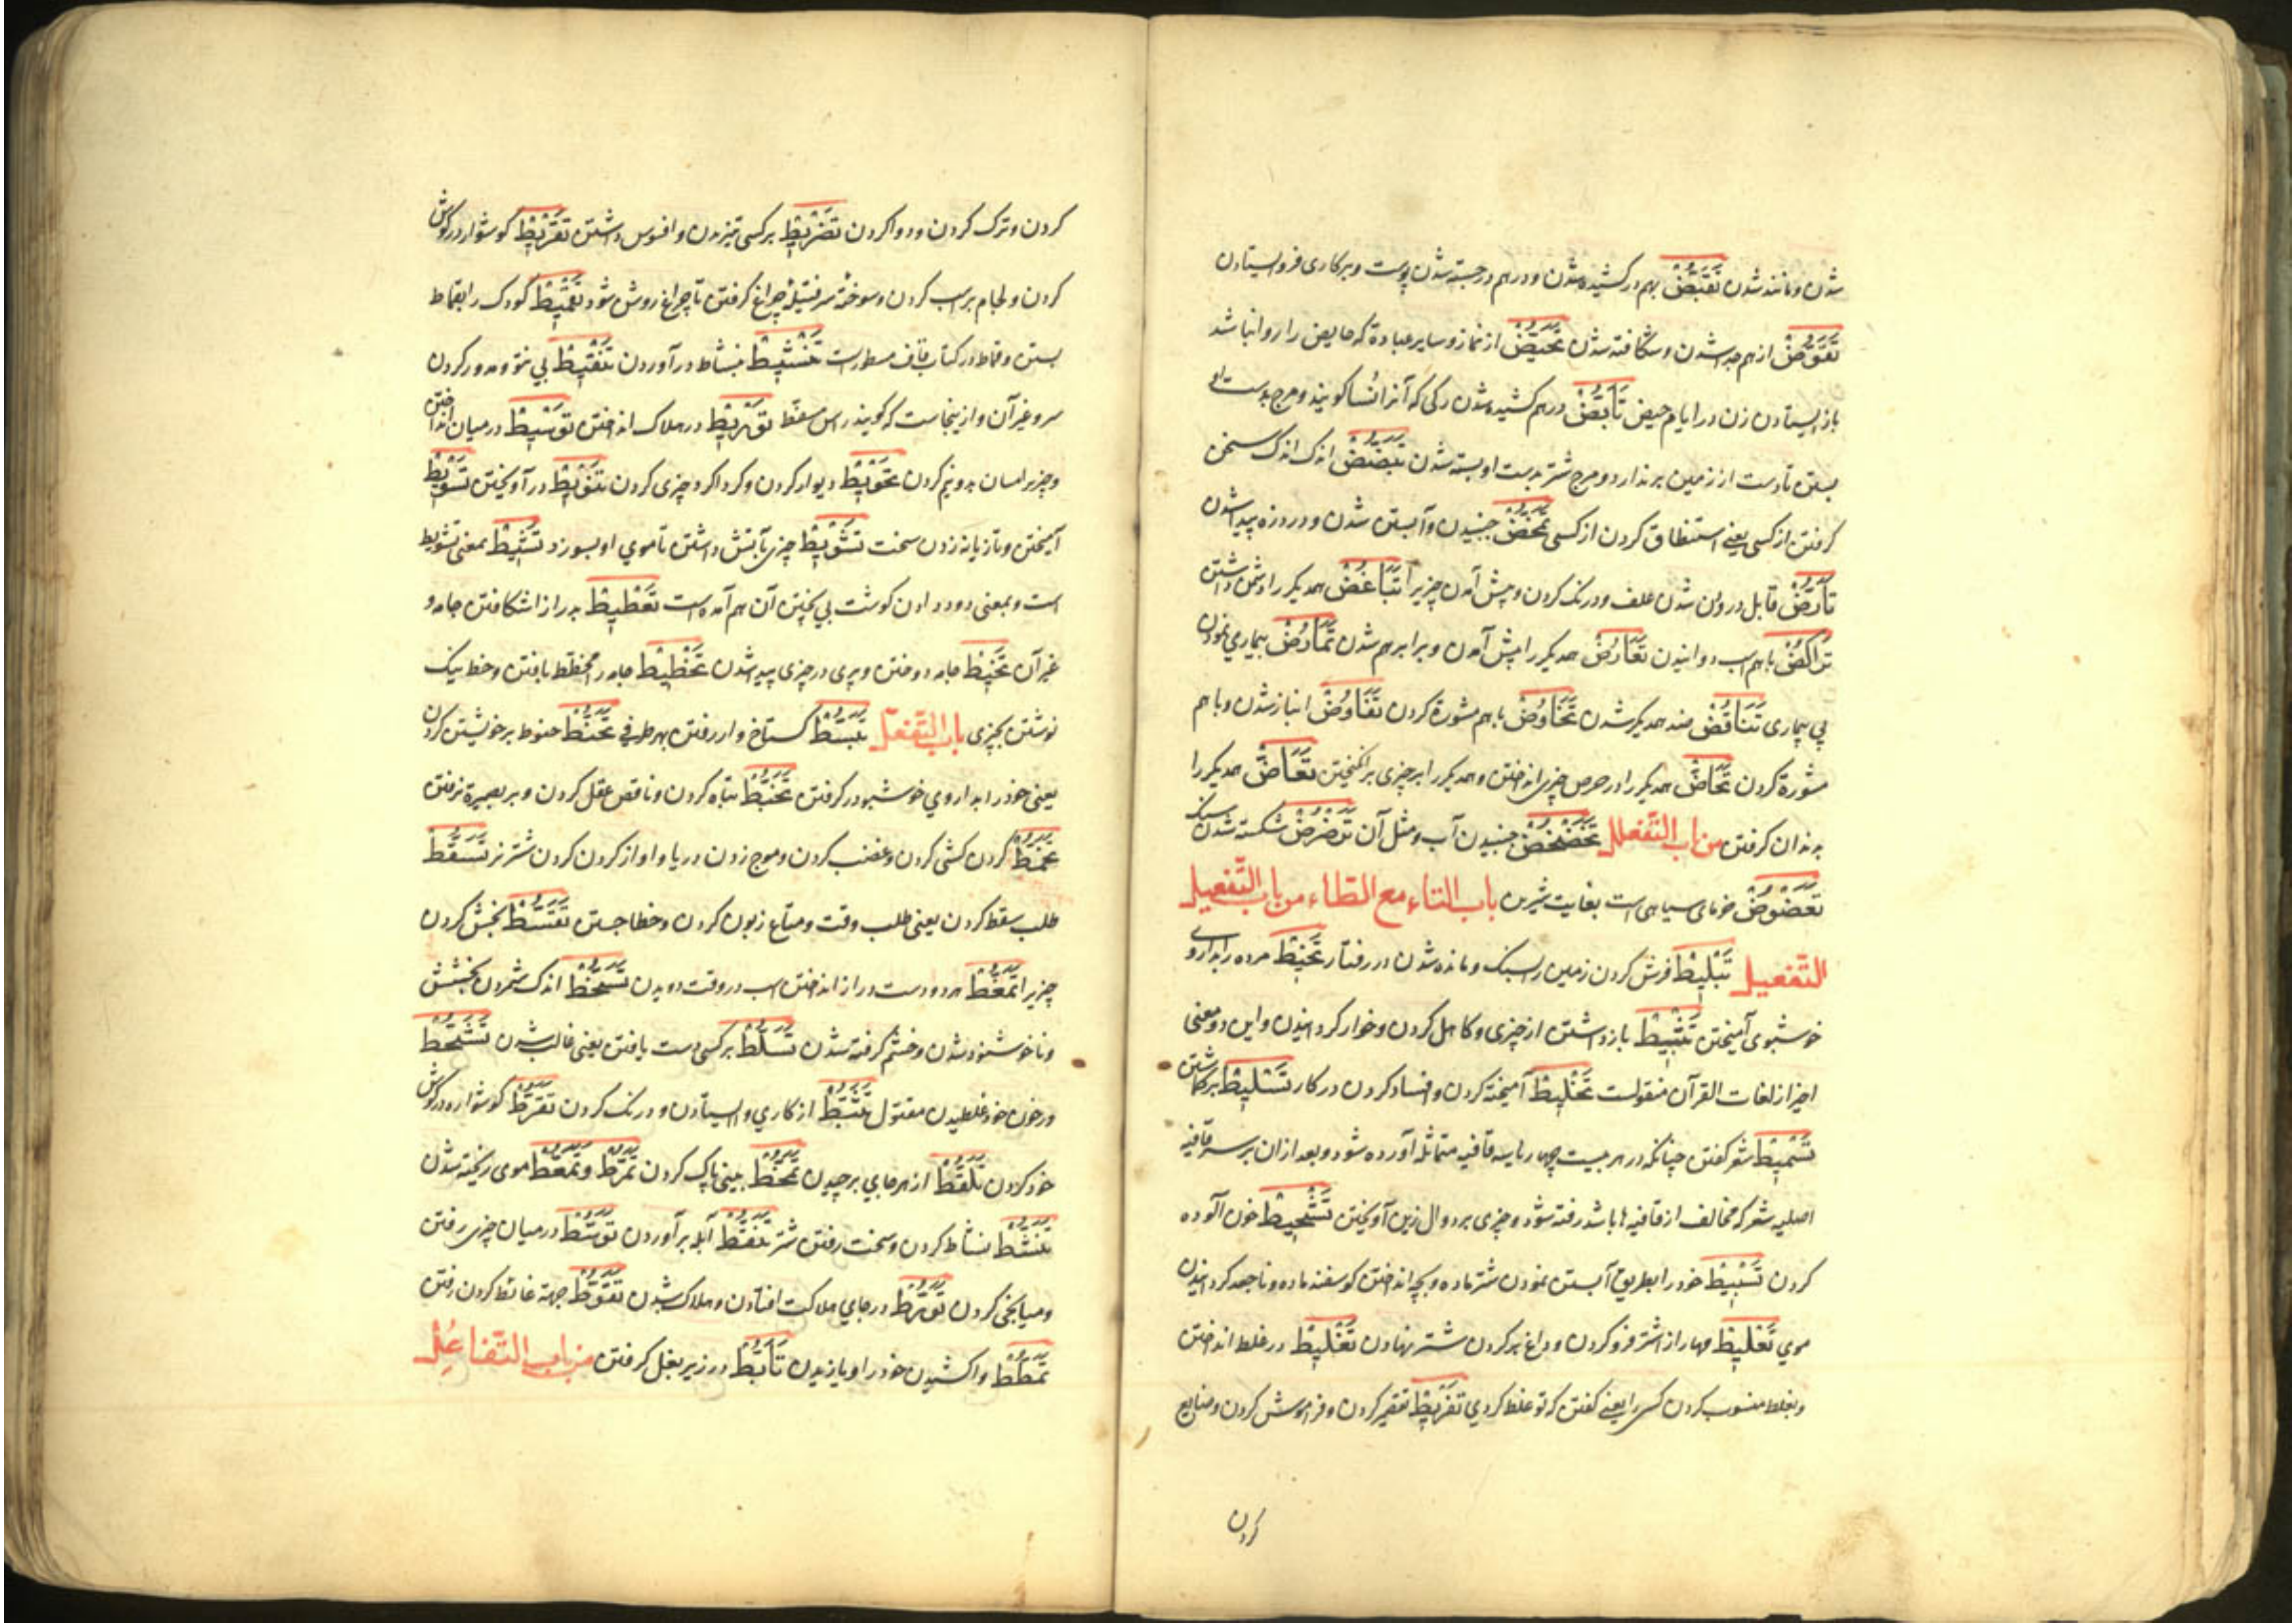 شدن و مانند شدن تَقَبُّضْ بهم در کشیده شدن و در هم در جسته شدن پوست و بر کاری فرو ایستادن
تَقَوُّضْ از هم جدا شدن و شکافته شدن تَحَیُّضْ از نماز و سایر عبادة که حایض را روا نباشد
باز ایستادن زن در ایام حیض تَأَبُّضْ در هم کشیده شدن رگی که آنرا نسا کویند و مرج بدست او
بستن تا دست از زمین بر ندارد و مرج شتر بدست او بسته شدن تَبَضُّضْ اندک اندک سخن
کرفتن از کسی یعنی استنطاق کردن از کسی تَمَخُّضْ جنبیدن و آبستن شدن و درد زه پیدا شدن
تَأَرُّضْ قابل درودن شدن علف و درنک کردن و پیش آمدن چیزیرا تَبَاغُضْ همدیکر را دشمن داشتن
تَرَاکُضْ باهم اسب دوانیدن تَعَارُضْ همدیکر را پیش آمدن و برابر هم شدن تَمَارُضْ بیماری نمودن
بی بیماری تَنَاقُضْ ضد همدیکر شدن تَخَاوُضْ باهم مشورة کردن تَفَاوُضْ انباز شدن و باهم
مشورة کردن تَحَاضّْ همدیکر را در حرص چیزی انداختن و همدیکر را بر چیزی برانکیختن تَعَاضّْ همدیکر را
بدندان کرفتن من باب التَّفَعْلُل تَخَضْخُضْ جنبیدن آب و مثل آن تَرَضْرُضْ شکسته شدن سنک
تَعْضُوضْ خرمای سیاهی است بغایت شیرین باب التاء مع الطاء من باب التَّفعیل
التَّفعیل تَبْلِیطْ فرش کردن زمین را بسنک و مانده شدن در رفتار تَحْنِیطْ مرده را بداروی
خوشبوی آمیختن تَثْبِیطْ باز داشتن از چیزی و کاهل کردن و خوار کردانیدن و این دو معنی
اخیر از لغات القرآن منقولست تَخْلِیطْ آمیخته کردن و افساد کردن در کار تَسْلِیطْ بر کماشتن
تَسْمِیطْ شعر کفتن چنانکه در هر بیت چهار یا سه قافیه متماثله آورده شود و بعد از ان بر سر قافیه
اصلیه شعر که مخالف از قافیه ها باشد رفته شود و چیزی بر دوال زین آویختن تَشْحِیطْ خون آلوده
کردن تَسْبِیطْ خود را بطریق آبستن نمودن شتر ماده و بچه انداختن کوسفند ماده و ناجعد کردانیدن
موی تَعْلِیطْ مهار از اشتر فرو کردن و داغ بر کردن شتر نهادن تَغْلِیطْ در غلط انداختن
و بغلط منسوب کردن کسی را یعنی کفتن که تو غلط کردی تَفْرِیطْ تقصیر کردن و فراموش کردن و ضایع
کردن
کردن و ترک کردن و دوا کردن تَضْرِیطْ بر کسی تیز دن و افسوس داشتن تَقْرِیطْ کوشوار در کوش
کردن و لجام بر اسب کردن و سوخته سر فتیله چراغ کرفتن تا چراغ روشن شود تَقْمِیطْ کودک را بقماط
بستن و قماط در کتاب قاف مسطور است تَنْشِیطْ بنشاط در آوردن تَنْقِیطْ
سر و غیر آن و از ینجاست که کویند راس مسفّط تَوْرِیطْ در هلاک انداختن تَوْسِیطْ در میان انداختن
و چیزیرا میان بدو نیم کردن تَحْوِیطْ دیوار کردن و کرداکرد چیزی کردن تَنْوِیطْ در آویختن تَسْوِیطْ
آمیختن و تازیانه زدن سخت تَشْوِیطْ چیزی بآتش داشتن تا موی او بسوزد تَشْیِیطْ بمعنی تشویط
است و بمعنی دود دادن کوشت بی پختن آن هم آمده است تَعْطِیطْ بدرازا شکافتن جامه و
غیر آن تَخْیِیطْ جامه دوختن و پری در چیزی پیدا شدن تَخْطِیطْ جامه را مخطط بافتن و خط نیک
نوشتن بچیزی باب التَّفَعُّل تَبَسُّطْ کستاخ وار رفتن بهر طرفی تَحَنُّطْ حنوط بر خویشتن کردن
یعنی خود را بداروی خوشبو در کرفتن تَخَبُّطْ تباه کردن و ناقص عقل کردن و بر بصیرة نرفتن
تَخَمُّطْ کردن کشی کردن و غضب کردن و موج زدن دریا و اواز کردن کردن شتر نر تَسَقُّطْ
طلب سقط کردن یعنی طلب وقت و متاع زبون کردن و خطا جستن تَقَسُّطْ بخش کردن
چیزیرا تَمَغُّطْ هر دو دست دراز انداختن اسب در وقت دویدن تَسَخُّطْ اندک شمردن بخشش
و ناخوشنود شدن و خشم کرفته شدن تَسَلُّطْ بر کسی دست یافتن یعنی غالب شدن تَشَحُّطْ
در خون خود غلطیدن مقتول تَثَبُّطْ از کاری وا ایستادن و درنک کردن تَقَرُّطْ کوشواره در کوش
خود کردن تَلَقُّطْ از هر جای برچیدن تَمَخُّطْ بینی پاک کردن تَمَرُّطْ و تَمَعُّطْ موی ریخته شدن
تَنَشُّطْ نشاط کردن و سخت رفتن شتر تَنَفُّطْ آبله برآوردن تَوَسُّطْ در میان چیزی رفتن
و میانجی کردن تَوَرُّطْ در جای هلاکت افتادن و هلاک شدن تَغَوُّطْ جهة غائط کردن رفتن
تَمَطُّطْ واکشیدن خود را و یازیدن تَأَبُّطْ در زیر بغل کرفتن من باب التَّفاعُل